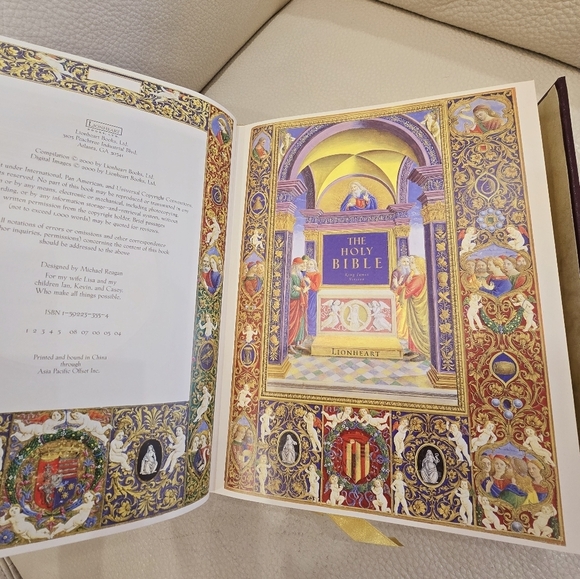 LIONHEART
Lionheart Books, Ltd.
5105 Peachtree Industrial Blvd.
Atlanta, GA 30341
Compilation © 2000 by Lionheart Books, Ltd.
Digital Images © 2000 by Lionheart Books, Ltd.
under International, Pan American, and Universal Copyright Conventions.
reserved. No part of this book may be reproduced or transmitted in any
or by any means, electronic or mechanical, including photocopying,
or by any information storage-and-retrieval system, without
written permission from the copyright holder. Brief passages
(not to exceed 1,000 words) may be quoted for reviews.
notices of errors or omissions and other correspondence
inquiries, permissions) concerning the content of this book
should be addressed to the above.
Designed by Michael Reagan
For my wife Lisa and my
children Ian, Kevin, and Casey,
Who make all things possible.
ISBN
1 2 3 4 5 08 07 06 05 04
Printed and bound in China
through
Asia Pacific Offset Inc.
THE
HOLY
BIBLE
King James
Version
LIONHEART